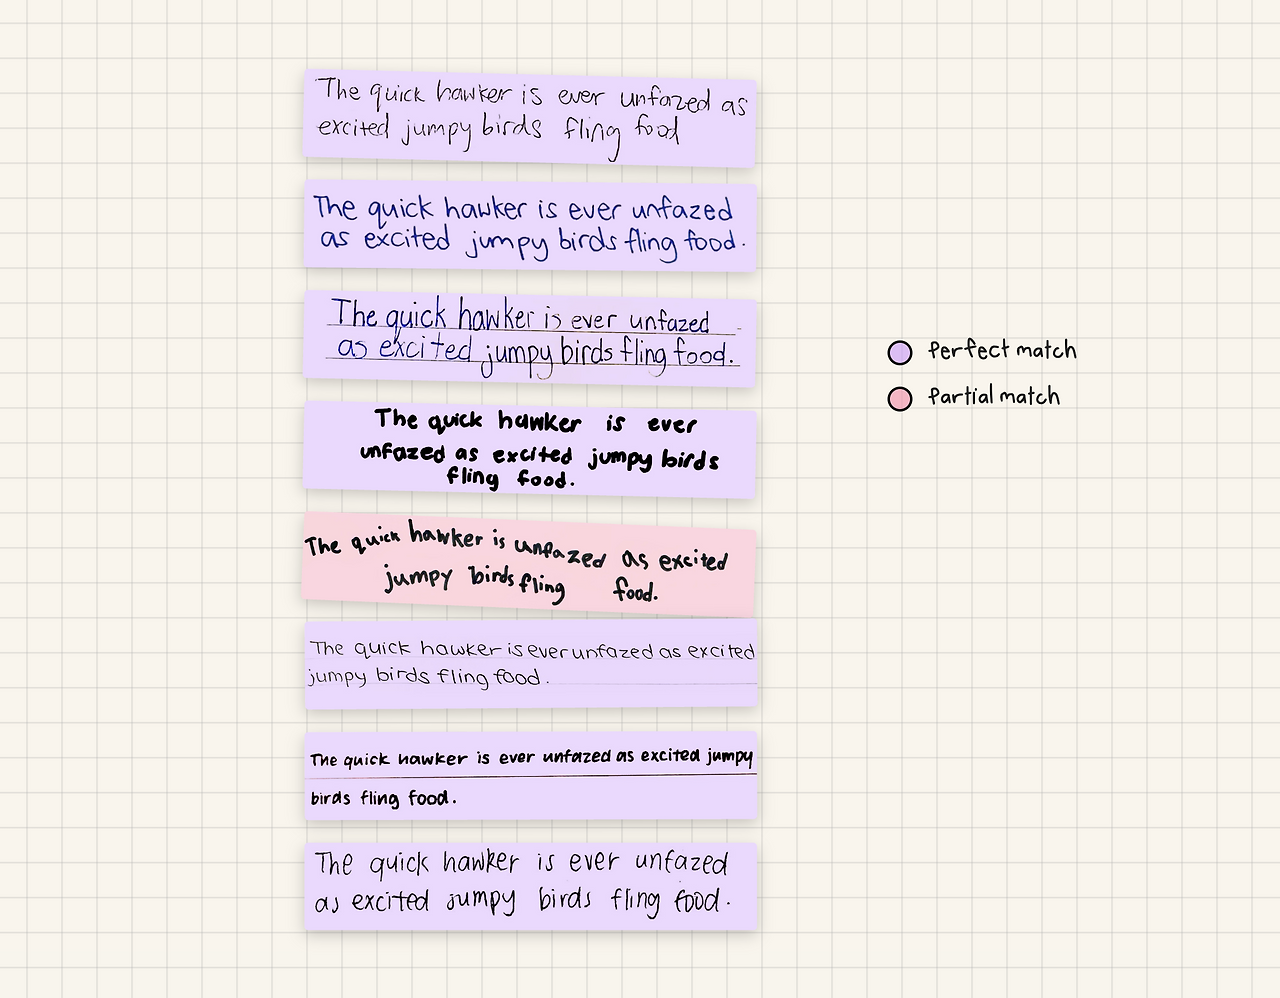 The quick hawker is ever unfazed as
excited jumpy birds fling food
The quick hawker is ever unfazed
as excited jumpy birds fling food.
The quick hawker is ever unfazed
as excited jumpy birds fling food.
The quick hawker is ever
unfazed as excited jumpy birds
fling food.
The quick hawker is unfazed as excited
jumpy birds fling food.
The quick hawker is ever unfazed as excited
jumpy birds fling food.
The quick hawker is ever unfazed as excited jumpy
birds fling food.
The quick hawker is ever unfazed
as excited jumpy birds fling food.
Perfect match
Partial match